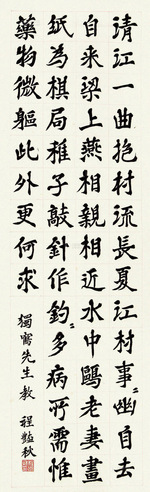 清江一曲抱村流長夏江村事〻幽自去
自来梁上燕相親相近水中鷗老妻畫
紙為棋局稚子敲針作釣〻多病所需惟
藥物微軀此外更何求
先生教 程豔秋